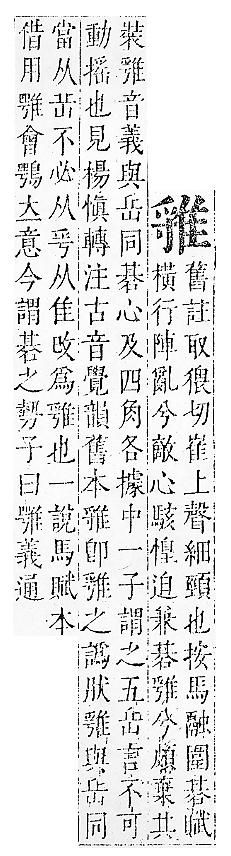 舊註取猥切崔上聲細頸也按馬融圍碁賦
橫行陣亂兮敵心駭惶迫兼碁兮頗棄其
裝音義與岳同碁心及四角各據中一子謂之五岳言不可
動搖也見楊慎轉注古音覺韻舊本卽之譌肰與岳同
當从岳不必从从隹改爲也一說馬賦本
借用會鶚大意今謂碁之勢子曰義通